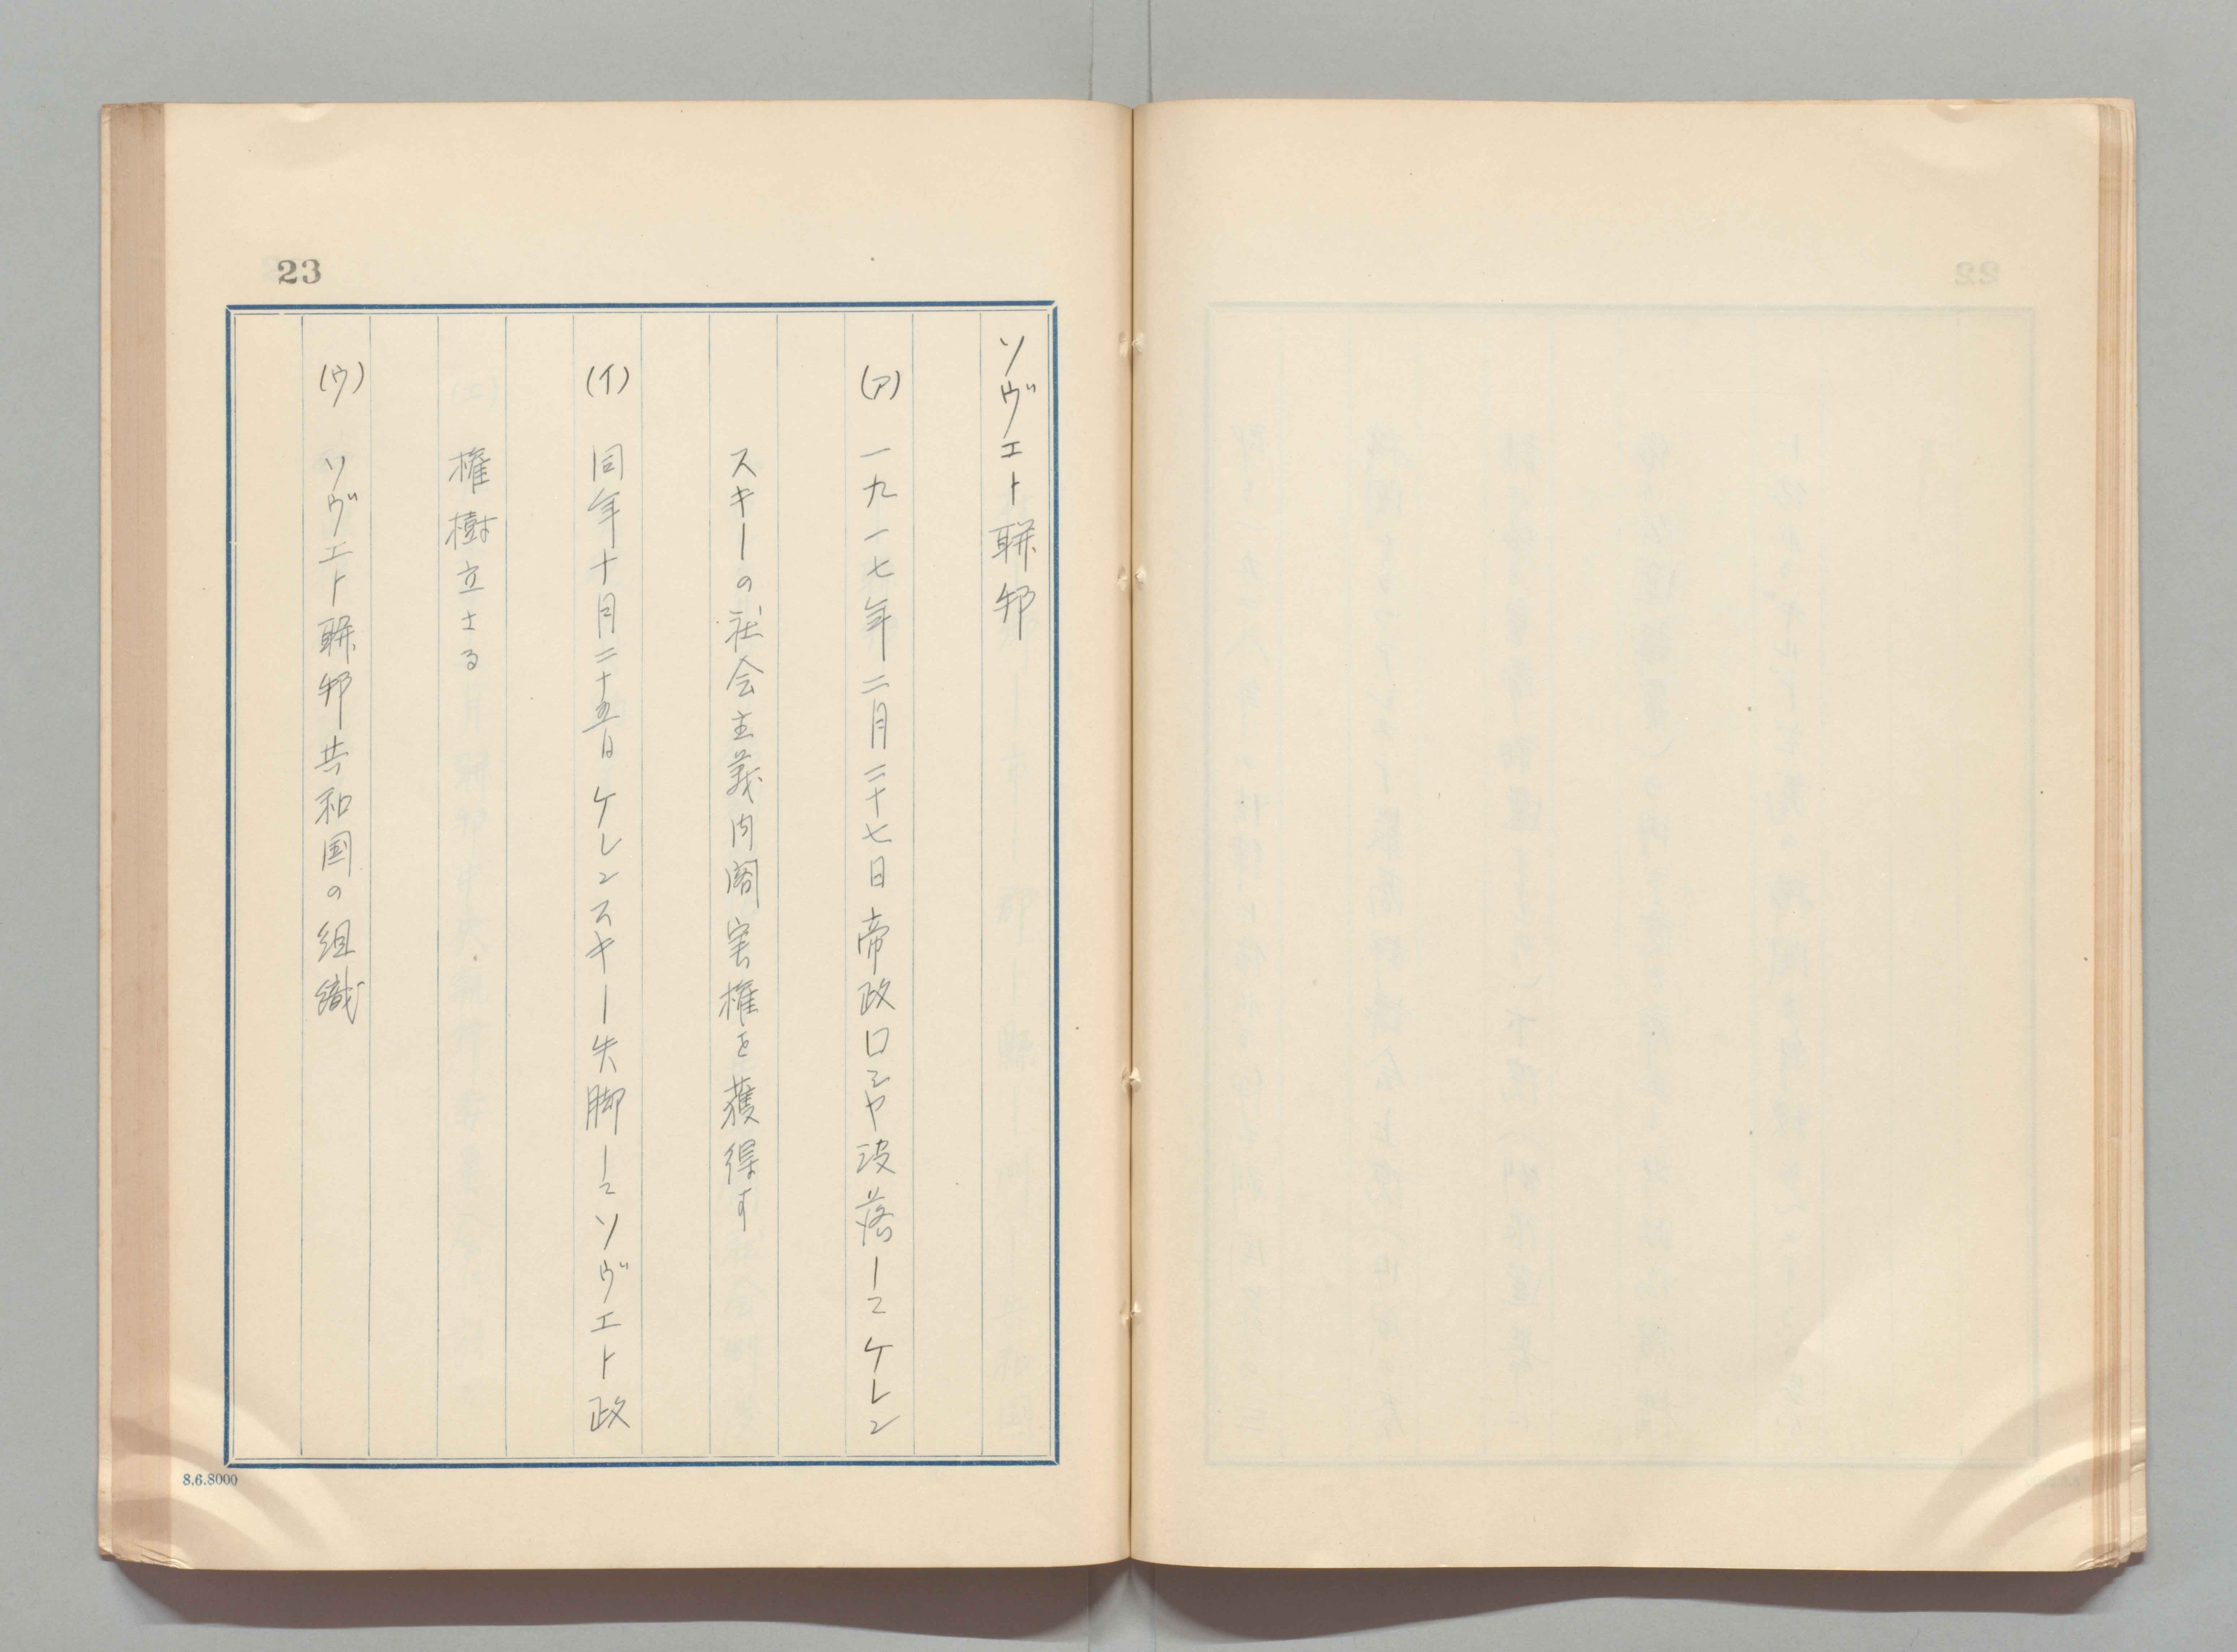 23
ソヴエト聯邦
(ア) 一九一七年二月二十七日帝政ロシヤ没落してケレン
スキーの社会主義内閣実権を獲得す
(イ) 同年十月二十五日ケレンスキー失脚してソヴエト政
権樹立さる
(ウ) ソヴエト聯邦共和国の組織
8.6.8000